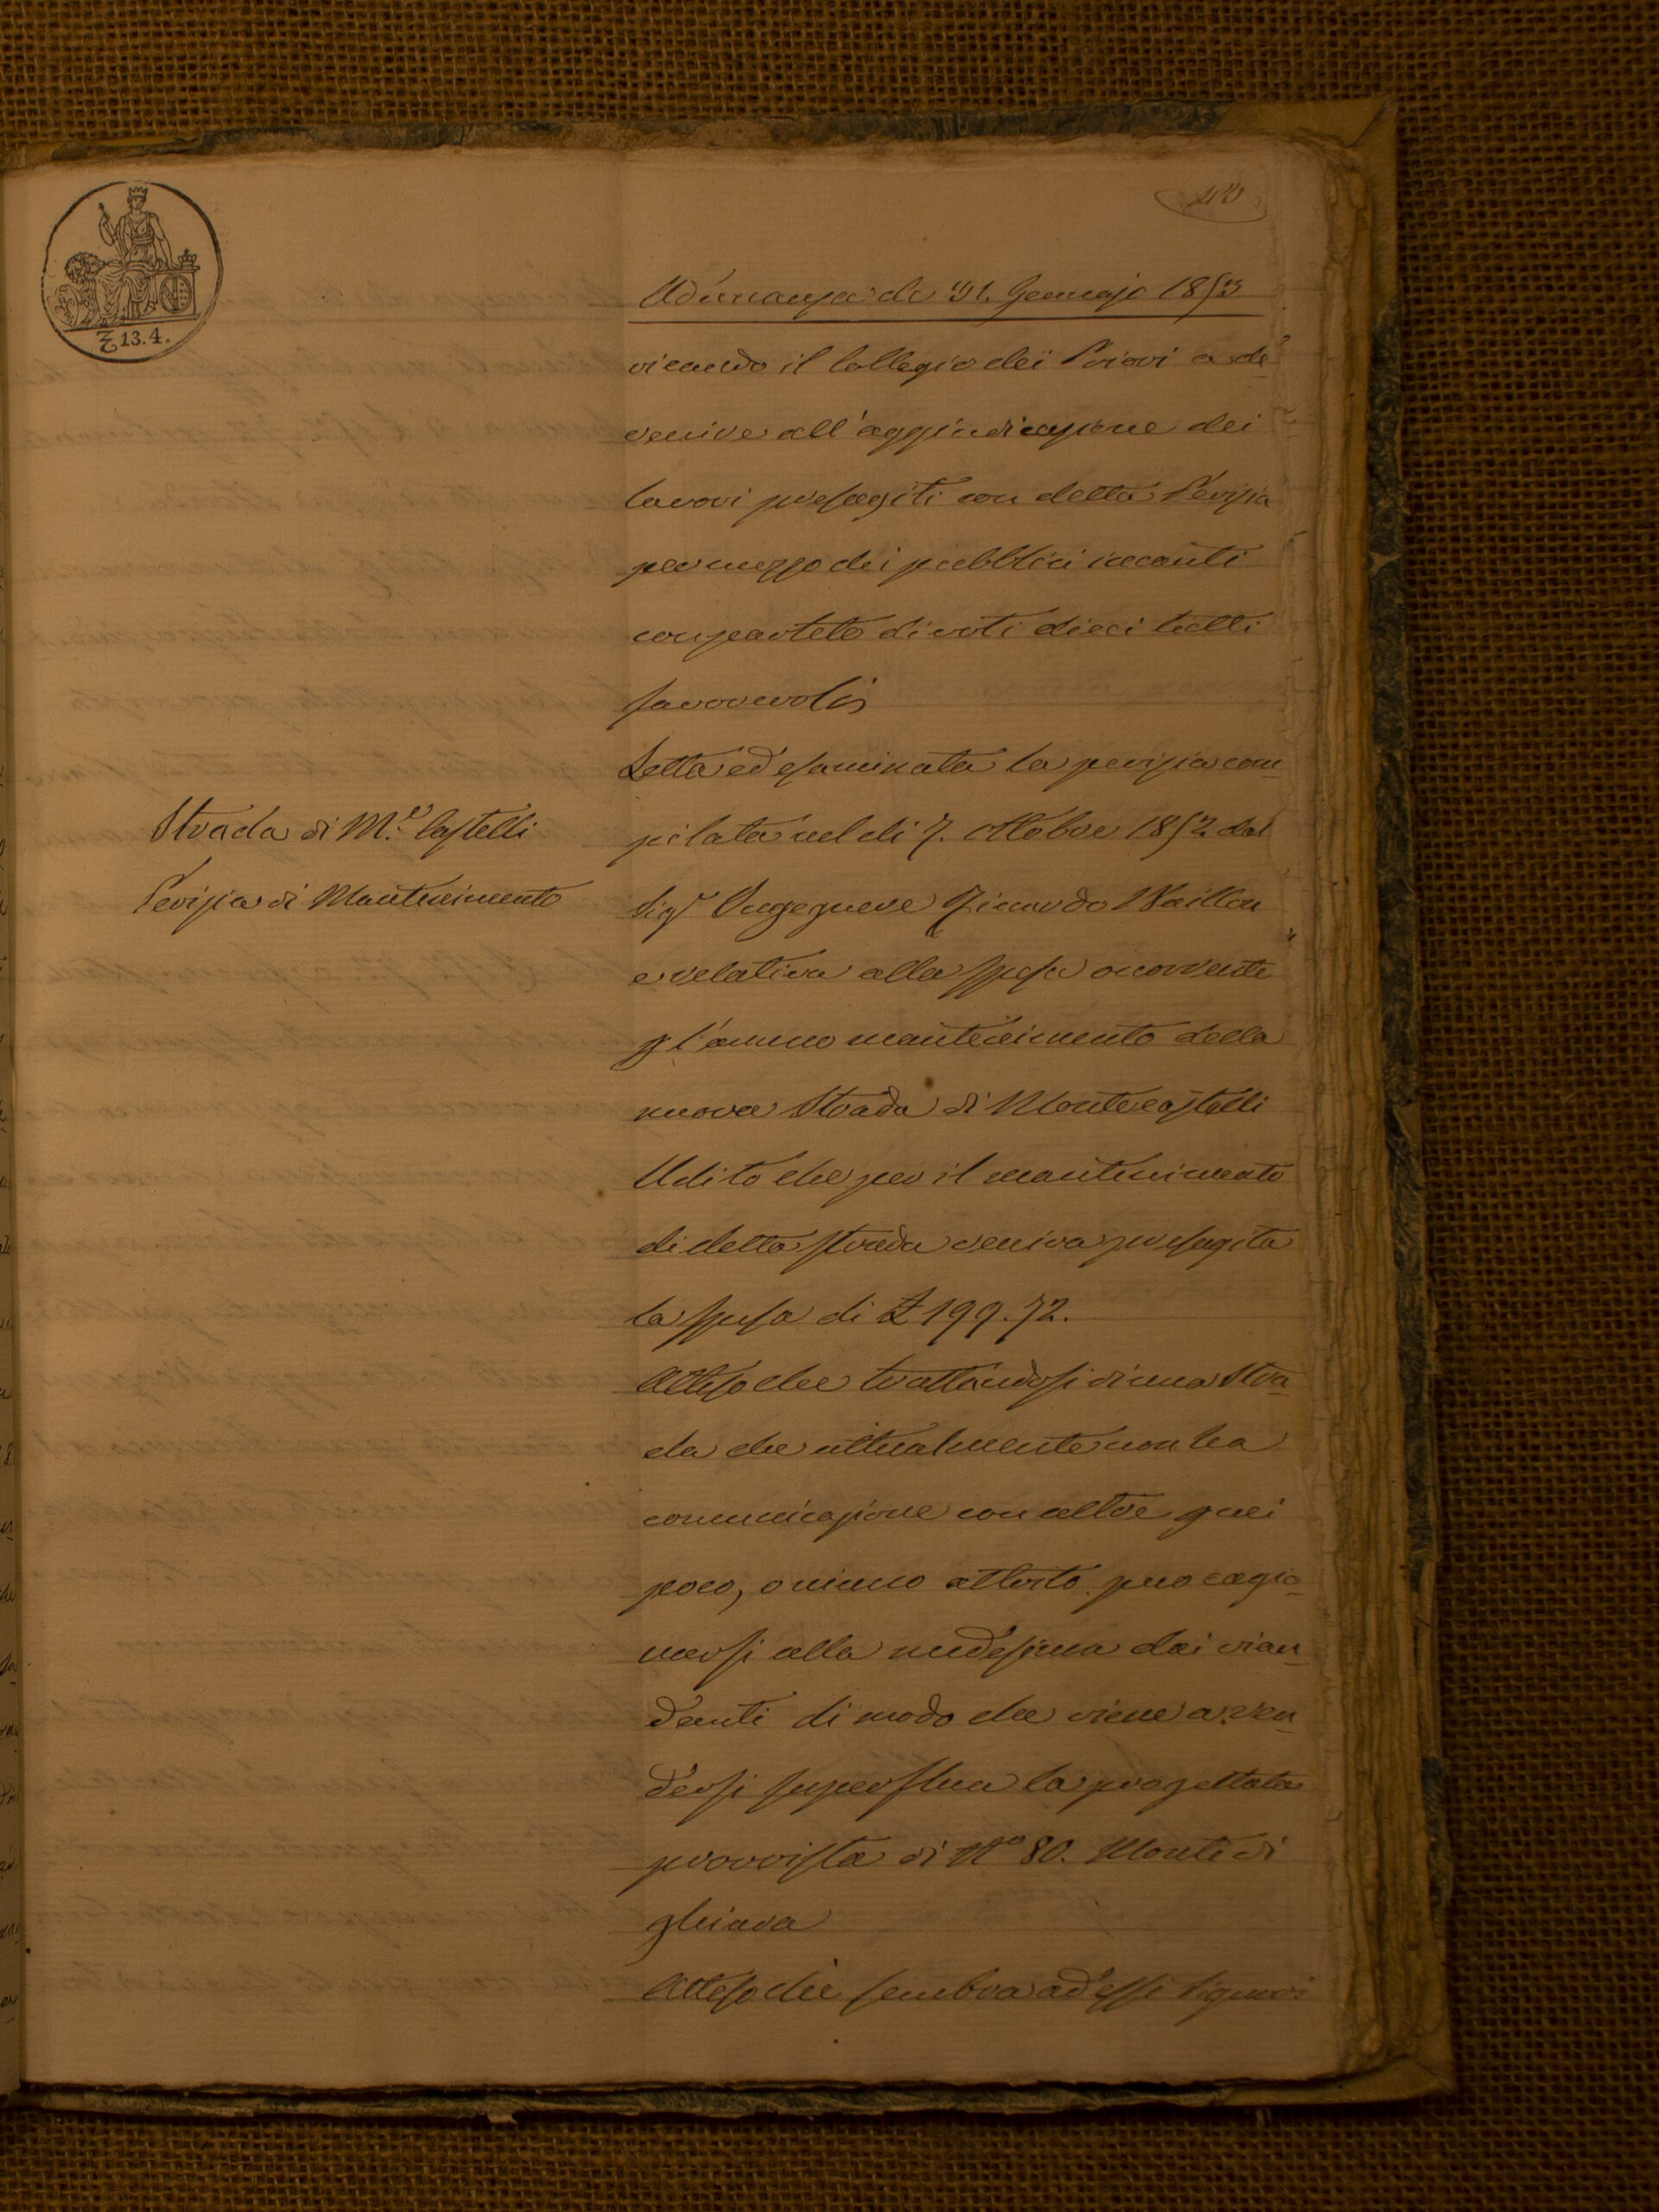 £ 13.4.
Adunanza de 31. Gennajo 1853
Strada di M.e Castelli
Perizia di Mantenimento
viando il Collegio dei Priori a de
venire all'aggiudicazione dei
lavori presagiti con detta Perizia
per mezzo dei pubblici incanti
con partito di voti dieci tutti
favorevoli
Letta ed esaminata la perizia com
pilata nel dì 7. Ottobre 1852 dal
Sigr Ingegnere
e relativa alla spesa occorrente
p l'annuo mantenimento della
nuova Strada di Montecastelli
Udito che per il mantenimento
di detta strada veniva presagita
la spesa di £ 199.72.
Atteso che trattandosi di una Stra
da che attualmente non ha
comunicazione con altre quei
poco, o niuno attrito può cagio
narsi alla medesima dai vian
danti di modo che viene a ren
dersi superflua la progettata
provvista di No 80. Monti di
ghiaia
Atteso che sembra ad essi Signori